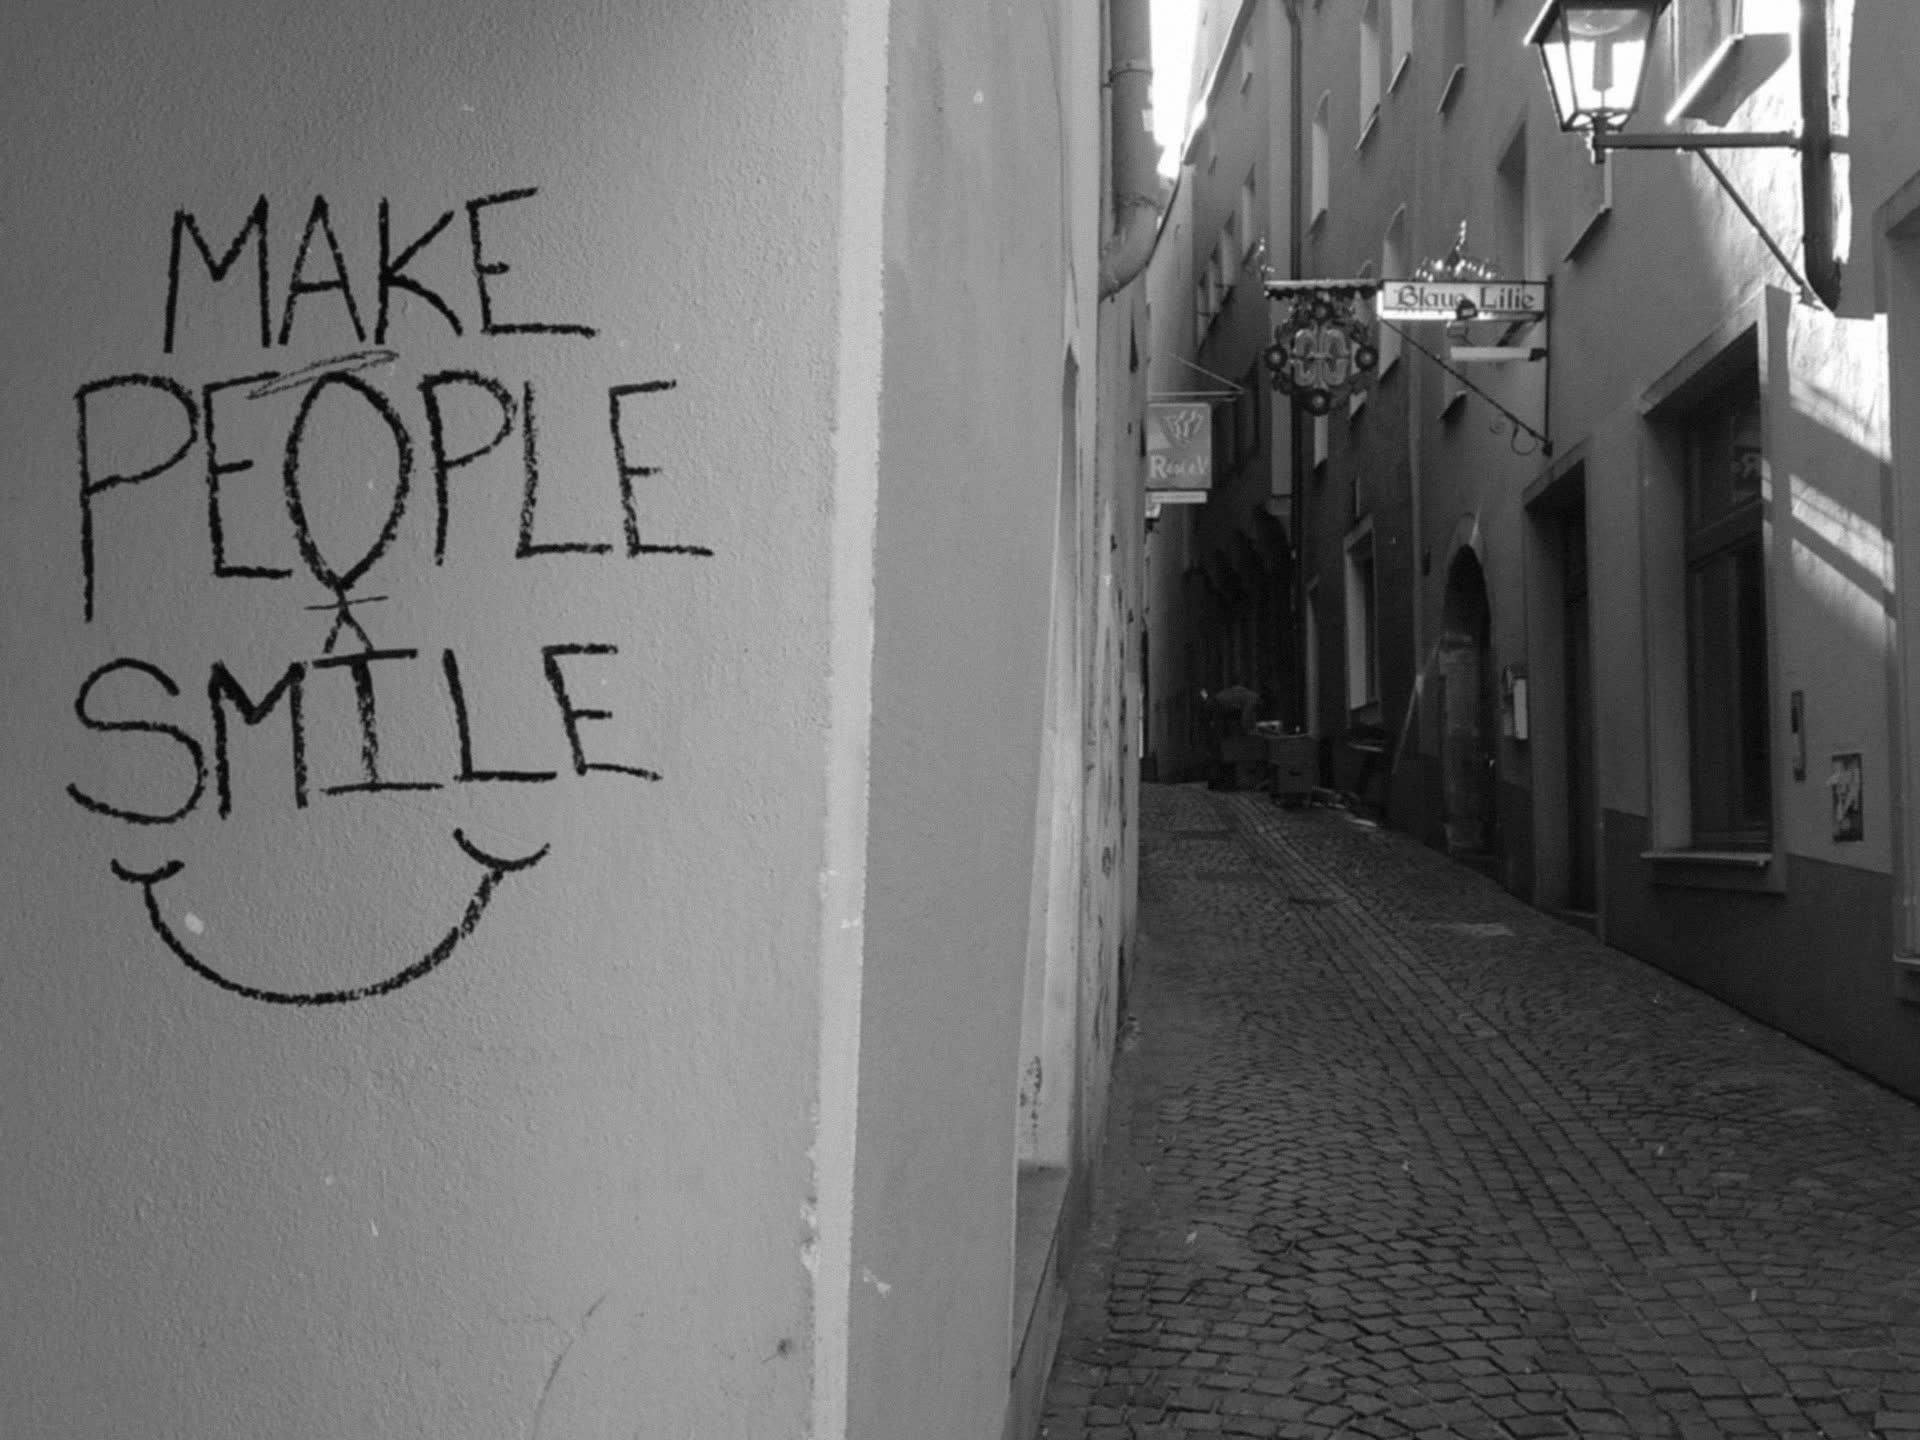 MAKE
PEOPLE
SMILE
Blaue Lilie